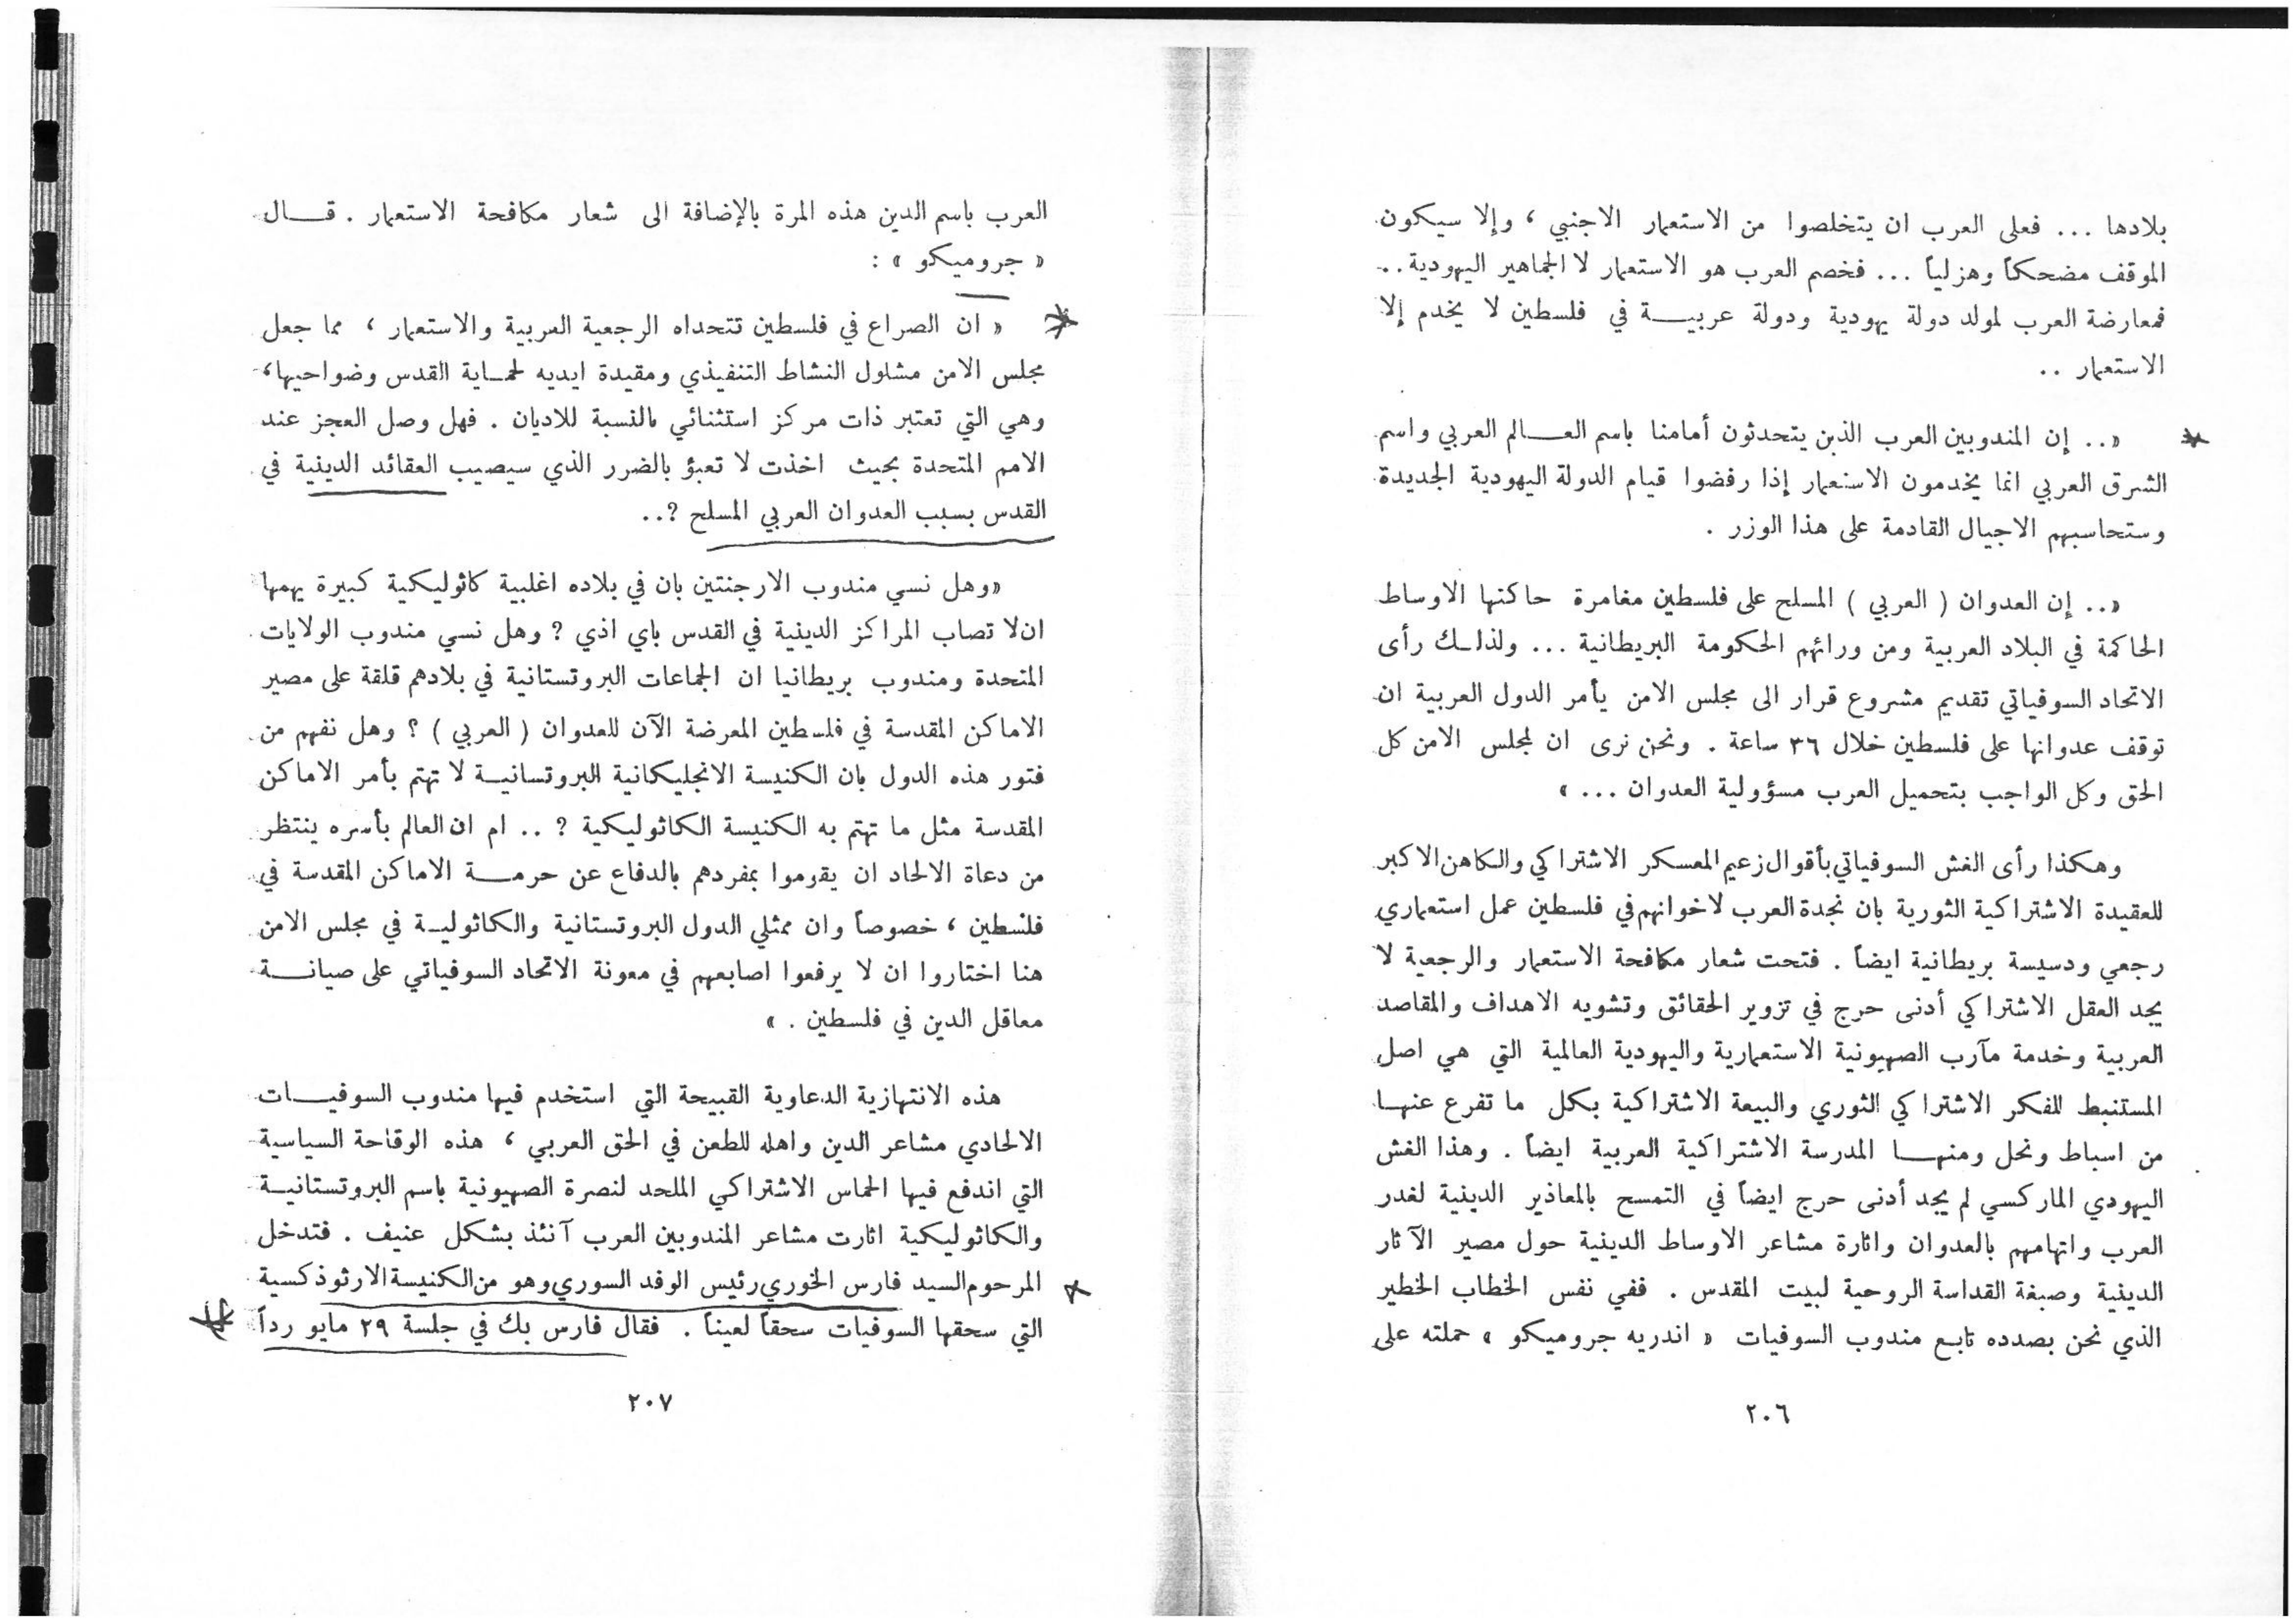 بلادها ... فعلى العرب ان يتخلصوا من الاستعمار الاجنبي ، وإلا سيكون
الموقف مضحكاً وهزلياً ... فخصم العرب هو الاستعمار لا الجماهير اليهودية ..
فمعارضة العرب لمولد دولة يهودية ودولة عربيـــة في فلسطين لا يخدم إلا
الاستعمار ..
« .. إن المندوبين العرب الذين يتحدثون أمامنا باسم العـــالم العربي واسم
الشرق العربي انما يخدمون الاستعمار إذا رفضوا قيام الدولة اليهودية الجديدة
وستحاسبهم الاجيال القادمة على هذا الوزر .
« .. إن العدوان ( العربي ) المسلح على فلسطين مغامرة حاكتها الاوساط
الحاكمة في البلاد العربية ومن ورائهم الحكومة البريطانية ... ولذلـك رأى
الاتحاد السوفياتي تقديم مشروع قرار الى مجلس الامن يأمر الدول العربية ان
توقف عدوانها على فلسطين خلال ٣٦ ساعة . ونحن نرى ان لمجلس الامن كل
الحق وكل الواجب بتحميل العرب مسؤولية العدوان ... »
وهكذا رأى الغش السوفياتي بأقوال زعيم المعسكر الاشتراكي والكاهن الاكبر
للعقيدة الاشتراكية الثورية بان نجدة العرب لاخوانهم في فلسطين عمل استعماري
رجعي ودسيسة بريطانية ايضاً . فتحت شعار مكافحة الاستعمار والرجعية لا
يجد العقل الاشتراكي أدنى حرج في تزوير الحقائق وتشويه الاهداف والمقاصد
العربية وخدمة مآرب الصهيونية الاستعمارية واليهودية العالمية التي هي اصل
المستنبط للفكر الاشتراكي الثوري والبيعة الاشتراكية بكل ما تفرع عنهـا
من اسباط ونحل ومنهـــا المدرسة الاشتراكية العربية ايضاً . وهذا الغش
اليهودي الماركسي لم يجد أدنى حرج ايضاً في التمسح بالمعاذير الدينية لغدر
العرب واتهامهم بالعدوان واثارة مشاعر الاوساط الدينية حول مصير الآثار
الدينية وصبغة القداسة الروحية لبيت المقدس . ففي نفس الخطاب الخطير
الذي نحن بصدده تابع مندوب السوفيات « اندريه جروميكو » حملته على
٢٠٦
العرب باسم الدين هذه المرة بالإضافة الى شعار مكافحة الاستعمار . قـــال
« جروميكو » :
« ان الصراع في فلسطين تتحداه الرجعية العربية والاستعمار ، مما جعل
مجلس الامن مشلول النشاط التنفيذي ومقيدة ايديه لحمـاية القدس وضواحيها ،
وهي التي تعتبر ذات مركز استثنائي بالنسبة للاديان . فهل وصل العجز عند
الامم المتحدة بحيث اخذت لا تعبؤ بالضرر الذي سيصيب العقائد الدينية في
القدس بسبب العدوان العربي المسلح ؟ ..
« وهل نسي مندوب الارجنتين بان في بلاده اغلبية كاثوليكية كبيرة يهمها
ان لا تصاب المراكز الدينية في القدس باي اذي ؟ وهل نسي مندوب الولايات
المتحدة ومندوب بريطانيا ان الجماعات البروتستانية في بلادهم قلقة على مصير
الاماكن المقدسة في فلسطين المعرضة الآن للعدوان ( العربي ) ؟ وهل نفهم من
فتور هذه الدول بان الكنيسة الانجليكانية البروتسانيـة لا تهتم بأمر الاماكن
المقدسة مثل ما تهتم به الكنيسة الكاثوليكية ؟ .. ام ان العالم بأسره ينتظر
من دعاة الالحاد ان يقوموا بمفردهم بالدفاع عن حرمـــة الاماكن المقدسة في
فلسطين ، خصوصاً وان ممثلي الدول البروتستانية والكاثوليـة في مجلس الامن
هنا اختاروا ان لا يرفعوا اصابعهم في معونة الاتحاد السوفياتي على صيانـــة
معاقل الدين في فلسطين . »
هذه الانتهازية الدعاوية القبيحة التي استخدم فيها مندوب السوفيـــات
الالحادي مشاعر الدين واهله للطعن في الحق العربي ، هذه الوقاحة السياسية
التي اندفع فيها الحماس الاشتراكي الملحد لنصرة الصهيونية باسم البروتستانيـة
والكاثوليكية اثارت مشاعر المندوبين العرب آنئذ بشكل عنيف . فتدخل
المرحوم السيد فارس الخوري رئيس الوفد السوري وهو من الكنيسة الارثوذكسية
التي سحقها السوفيات سحقاً لعيناً . فقال فارس بك في جلسة ٢٩ مايو رداً
٢٠٧